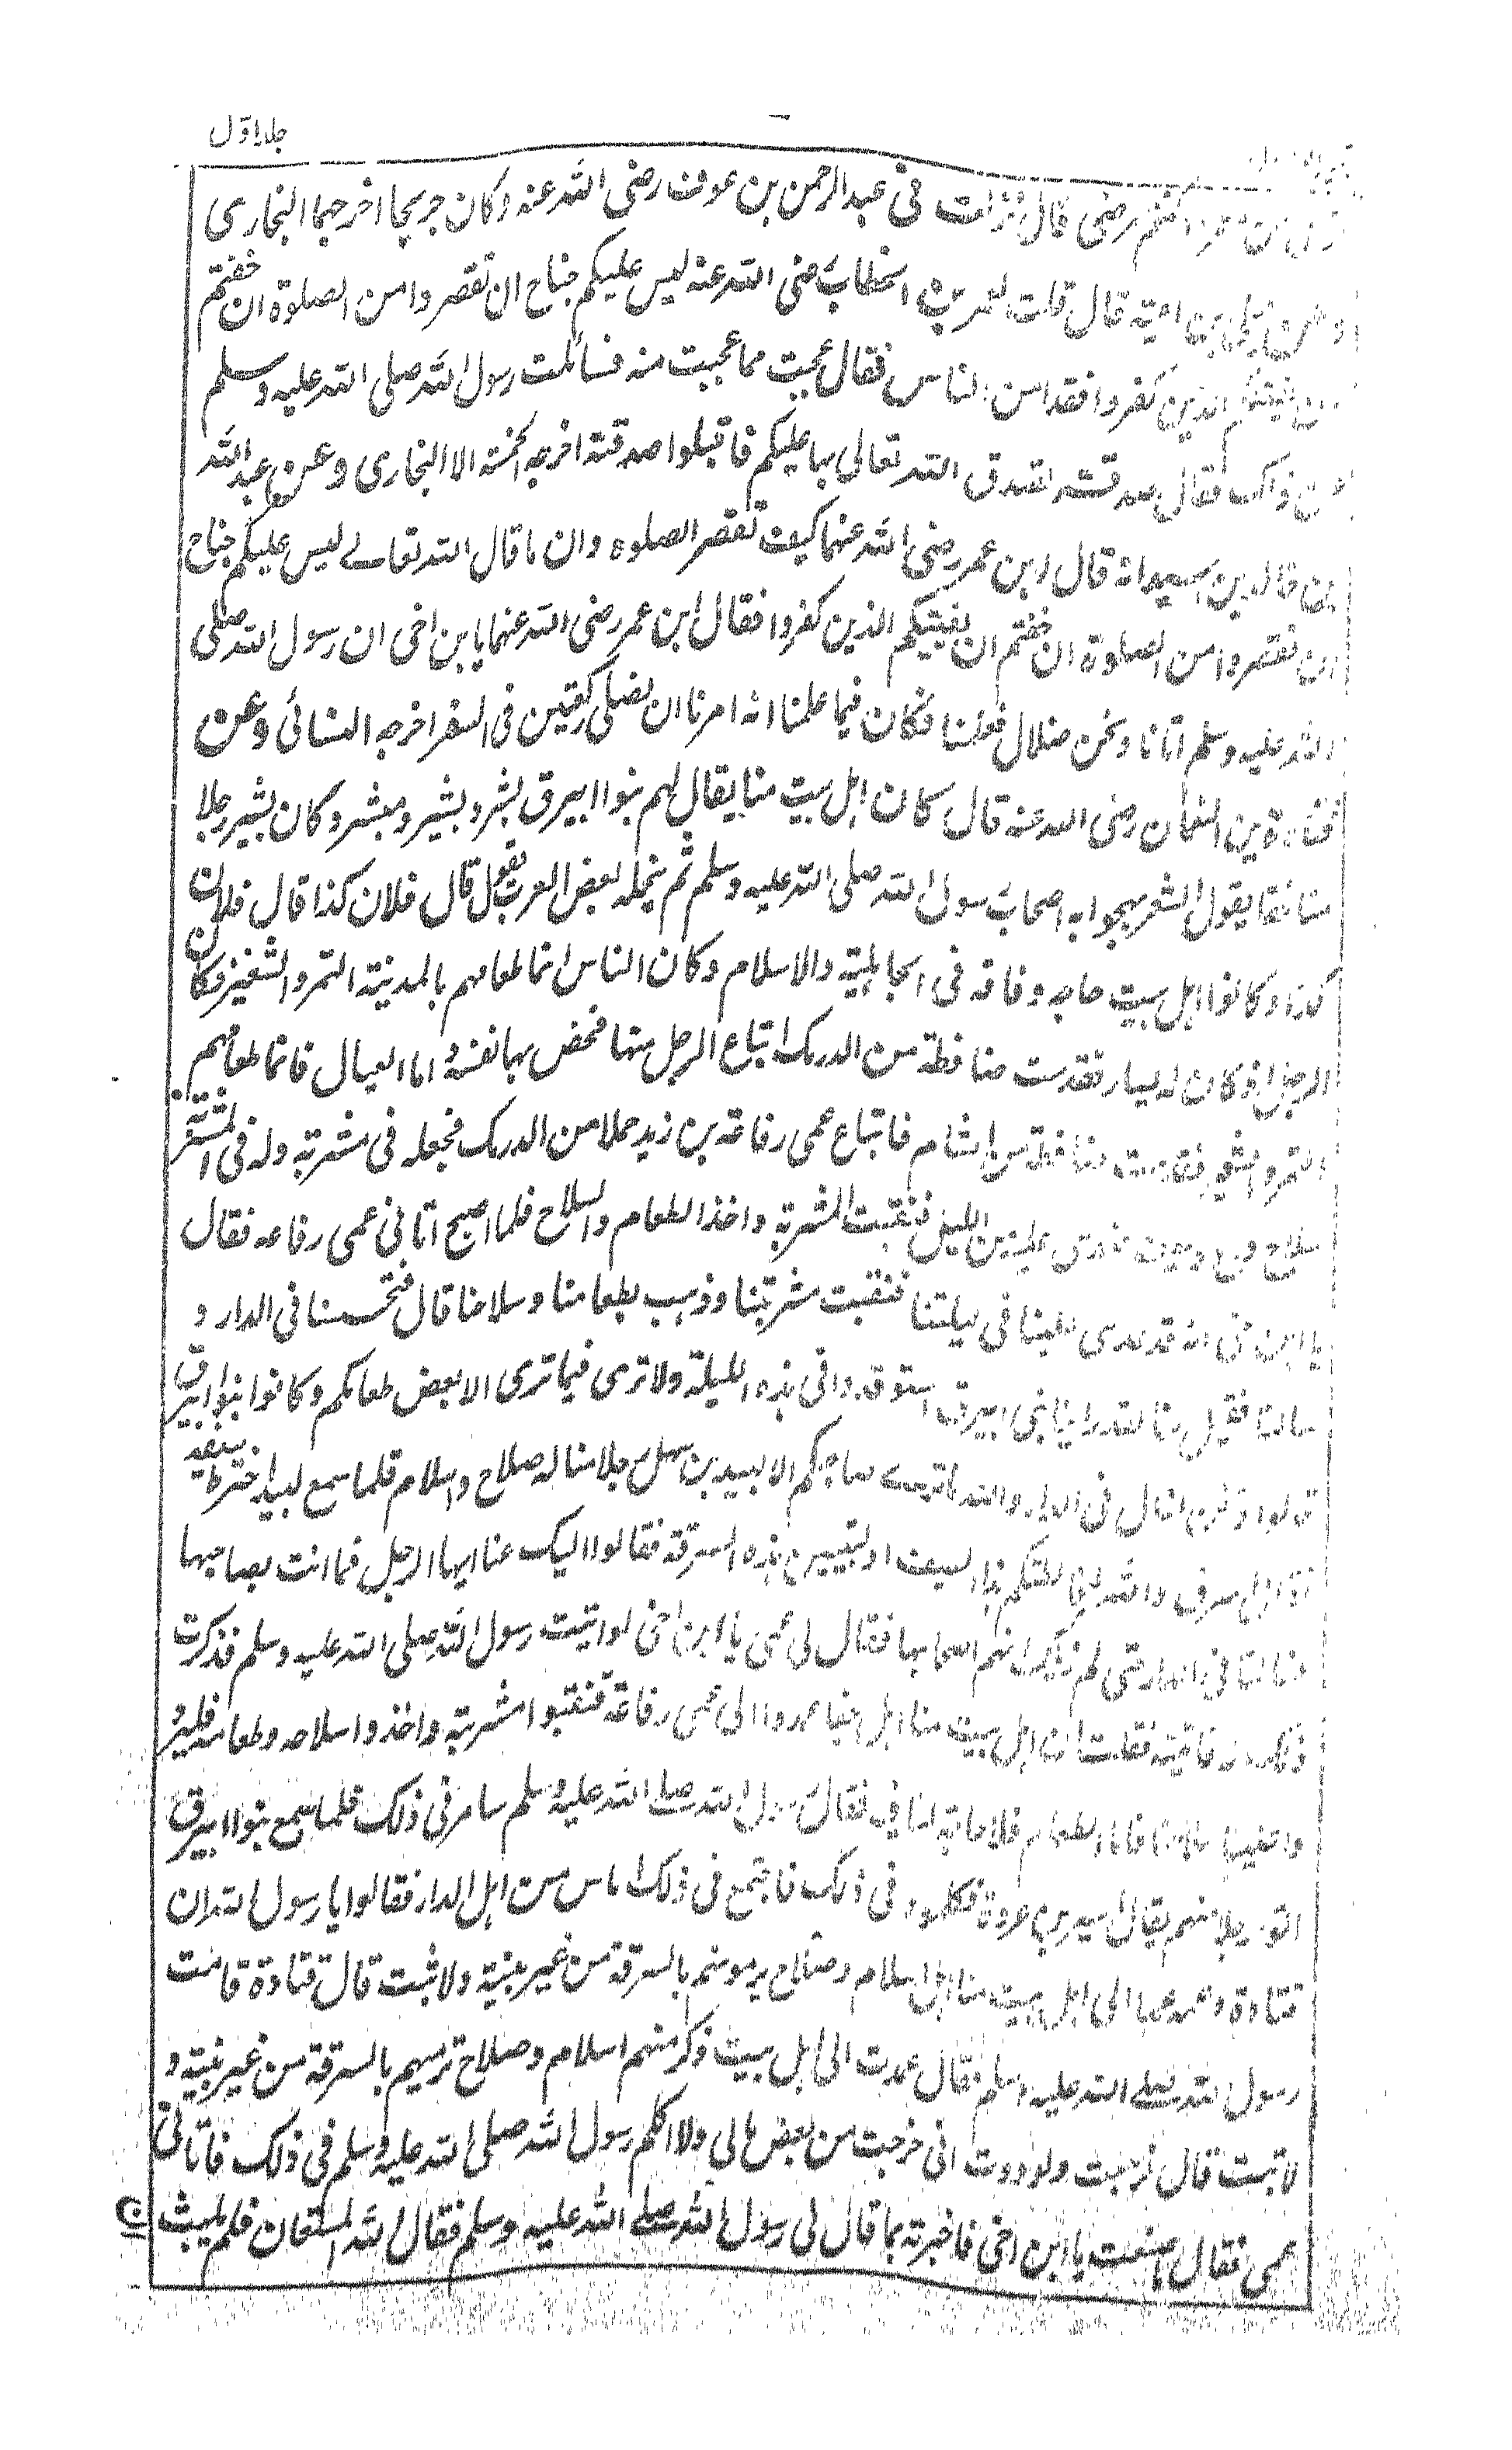 جلد اول
مرضى قال نزلت فى عبد الرحمن بن عوف رضى الله عنه وكان جريحا اخرجهما البخارى
وعن يعلى بن امية قال قلت لعمر بن الخطاب رضى الله عنه ليس عليكم جناح ان تقصروا من الصلوة ان خفتم
ان يفتنكم الذين كفروا فقد امن الناس فقال عجبت مما عجبت منه فسألت رسول الله صلى الله عليه وسلم
عن ذلك فقال صدقة تصدق الله تعالى بها عليكم فاقبلوا صدقته اخرجه الخمسة الا البخارى وعن عبد الله
بن خالد بن اسيد انه قال لابن عمر رضى الله عنهما كيف تقصر الصلوة وان ما قال الله تعالے ليس عليكم جناح
ان تقصروا من الصلوة ان خفتم ان يفتنكم الذين كفروا فقال ابن عمر رضى الله عنهما يا بن اخى ان رسول الله صلى
الله عليه وسلم اتانا ونحن ضلال فعلمنا فكان فيما علمنا انه امرنا ان نصلى ركعتين فى السفر اخرجه النسائى وعن
قتادة بن النعمان رضى الله عنه قال كان اهل بيت منا يقال لهم بنوا ابيرق بشر وبشير ومبشر وكان بشير رجلا
منافقا يقول الشعر يهجوا به اصحاب رسول الله صلى الله عليه وسلم ثم ينحله بعض العرب يقول قال فلان كذا قال فلان
كذا وكانوا اهل بيت حاجه وفاقه فى الجاهلية والاسلام وكان الناس انما طعامهم بالمدينة التمر والشعير فكان
الرجل اذا كان له يسار فقدمت ضافطة من الدرمك ابتاع الرجل منها فخص بها نفسه واما العيال فانما طعامهم
التمر والشعير فقدمت ضافطة من الشام فابتاع عمى رفاعة بن زيد حملا من الدرمك فجعله فى مشربة وله فى المشربة
سلاح عليه من الليل فنقبت المشربة واخذ الطعام والسلاح فلما اصبح اتانى عمى رفاعه فقال
يا ابن اخى انه قد عدى علينا فى ليلتنا فنقبت مشربتنا وذهب بطعامنا وسلاحنا قال فتحسسنا فى الدار و
سالنا فقيل لنا لقد راينا بنى ابيرق استوقدوا فى هذه الليلة ولا نرى فيما نرى الا بعض طعامكم وكانوا بنوا ابيرق
قالوا ونحن نسال فى الدار والله ما نرے صاحبكم الا لبيد بن سهل رجلا منا له صلاح واسلام فلما سمع لبيد اخترط سيفه
وقال اسرق والله ليخالطنكم هذا السيف او لتبينن هذه السرقة فقالوا اليك عنا ايها الرجل فما انت بصاحبها
فسالنا فى الدار حتى لم نشك انهم اصحابها فقال لى عمى يا ابن اخى لو اتيت رسول الله صلى الله عليه وسلم فذكرت
ذلك له فاتيته فقلت ان اهل بيت منا اهل جفا عمدوا الى عمى رفاعة فنقبوا مشربته واخذوا سلاحه وطعامه فليردوا
علينا سلاحنا فاما الطعام فلا حاجة لنا فيه فقال رسول الله صلے الله عليه وسلم سامر فى ذلك فلما سمع بنوا ابيرق
اتوا رجلا منهم يقال اسير بن عروة فكلموه فى ذلك فاجتمع فى ذلك اناس من اهل الدار فقالوا يا رسول الله ان
قتادة وعمه عمدا الى اهل بيت منا اهل اسلام وصلاح يرمونهم بالسرقة من غير بينة ولا ثبت قال قتادة فاتيت
رسول الله صلے الله عليه وسلم فقال عمدت الى اهل بيت ذكر منهم اسلام وصلاح ترميهم بالسرقة من غير بينة و
لا ثبت قال فرجعت ولوددت انى خرجت من بعض مالى ولا اكلم رسول الله صلى الله عليه وسلم فى ذلك فاتانى
عمى فقال ما صنعت يا ابن اخى فاخبرته بما قال لى رسول الله صلے الله عليه وسلم فقال الله المستعان فلم يلبث
ان